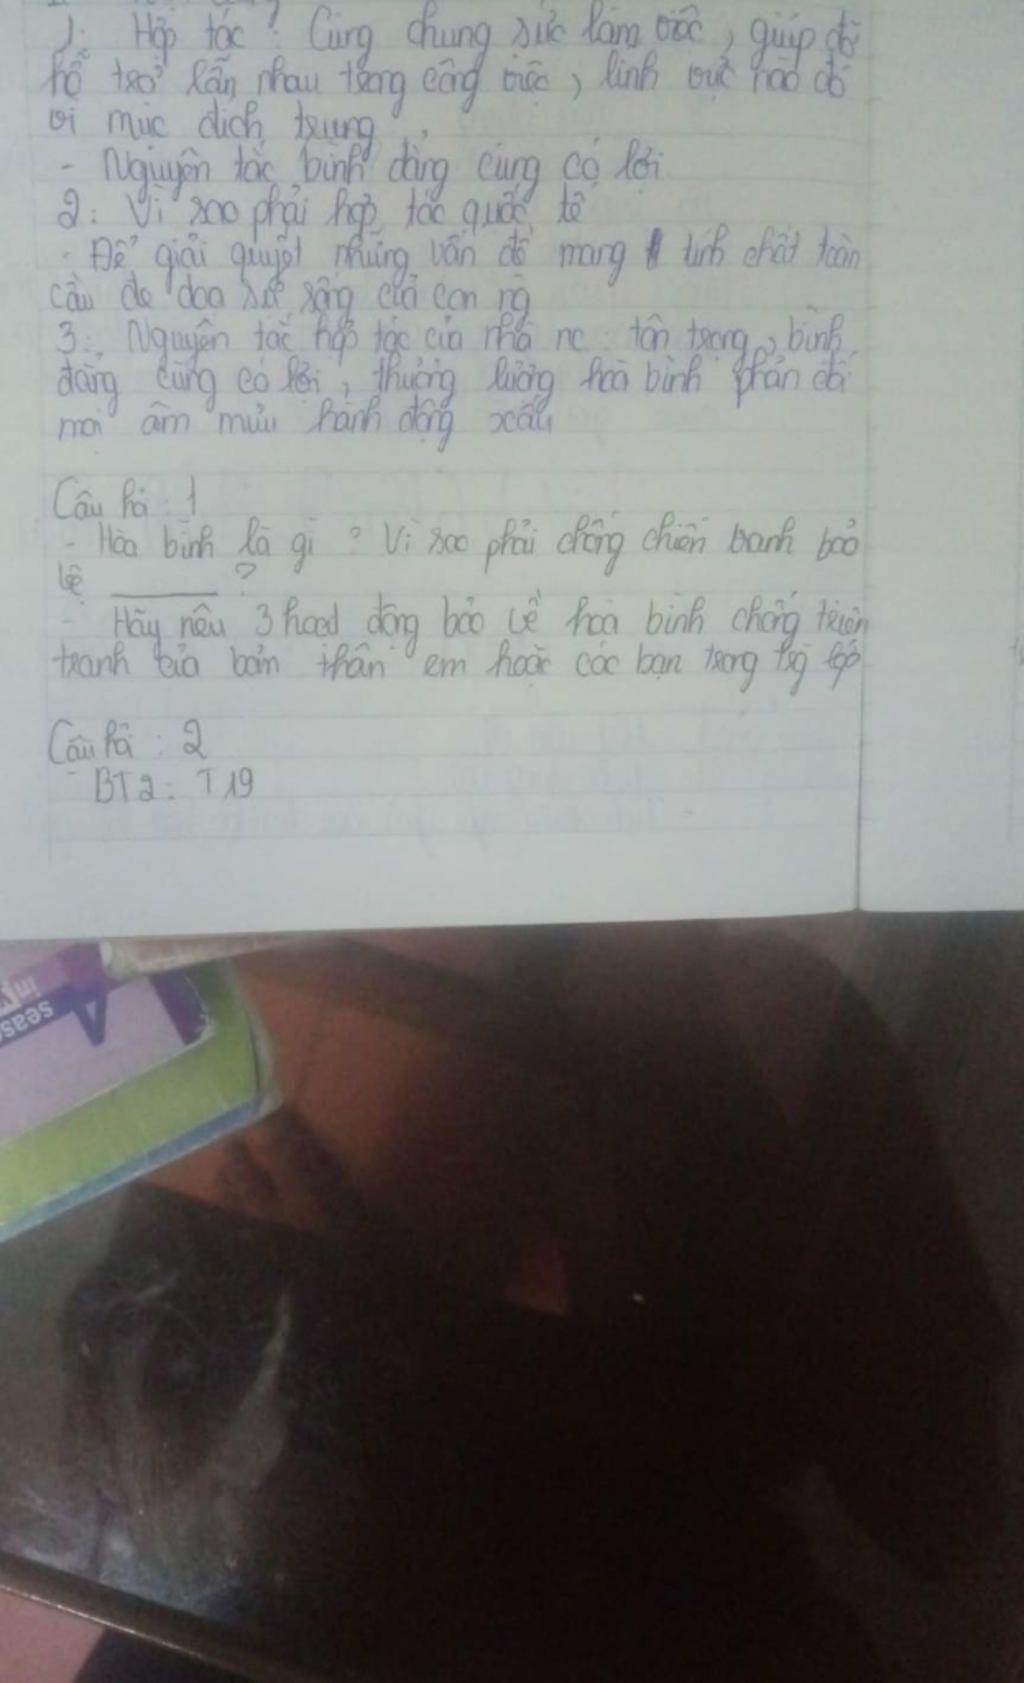 1. Hợp tác? Cùng chung sức làm việc, giúp đỡ
hỗ trợ lẫn nhau trong công việc, lĩnh vực nào đó
vì mục đích trung
- Nguyên tắc bình đẳng cùng có lợi
2: Vì sao phải hợp tác quốc tế
- Để giải quyết những vấn đề mang tính chất toàn
cầu đe dọa sự sống của con ng
3: Nguyên tắc hợp tác của nhà nc: tôn trọng, bình
đẳng cùng có lợi, thương lượng hòa bình phản đối
mọi âm mưu hành động xấu
Câu hỏi: 1
- Hòa bình là gì? Vì sao phải chống chiến tranh bảo
vệ ______?
- Hãy nêu 3 hoạt động bảo vệ hoà bình chống chiến
tranh của bản thân em hoặc các bạn trong trg lớp
Câu hỏi: 2
- BT2: T19
in
seas